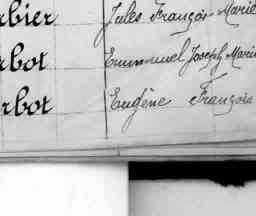 rbier Jules François Marie
rbot Emmanuel Joseph Marie
rbot Eugène François